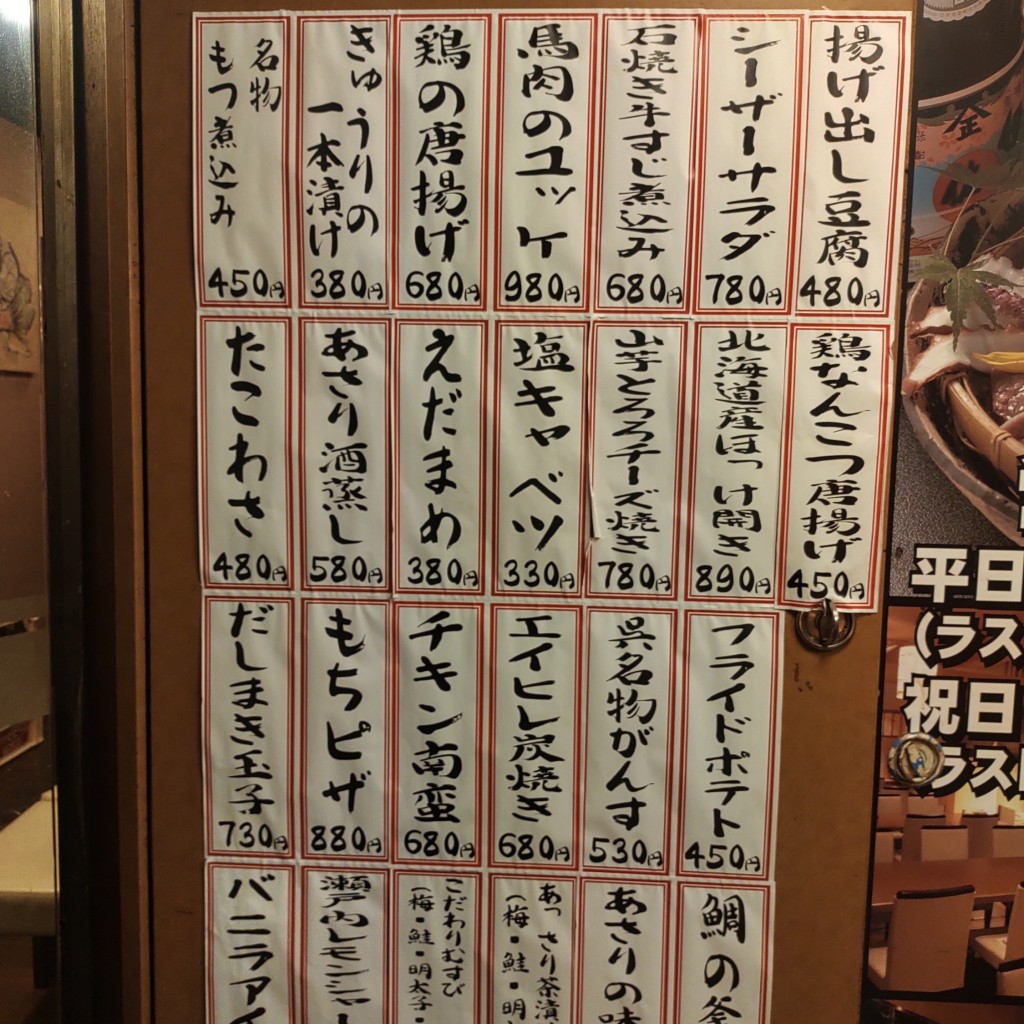 揚げ出し豆腐
480円
シーザーサラダ
780円
石焼き牛すじ煮込み
680円
馬肉のユッケ
980円
鶏の唐揚げ
680円
きゅうりの
一本漬け
380円
名物
もつ煮込み
450円
鶏なんこつ唐揚げ
450円
北海道産ほっけ開き
890円
山芋とろろチーズ焼き
780円
塩キャベツ
330円
えだまめ
380円
あさり酒蒸し
580円
たこわさ
480円
フライドポテト
450円
呉名物がんす
530円
エイヒレ炭焼き
680円
チキン南蛮
680円
もちピザ
880円
だしまき玉子
730円
鯛の釜
あさりの味
あっさり茶漬
(梅・鮭・明
こだわりむすび
(梅・鮭・明太子・
瀬戸内レモンシャー
バニラアイ
釜
平日
(ラス
祝日
ラス